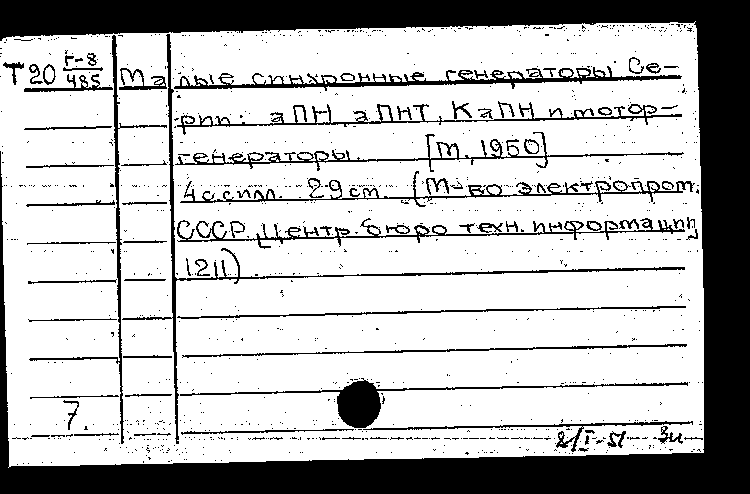 Т20 Г-8/485 Малые синхронные генераторы Се-
рии: аПН, аПНТ, КаПН и мотор-
генераторы. [М., 1950]
4 с. с илл. 29 см. (М-во электропром.
СССР. Центр. бюро техн. информации,
1211).
7.
2/I-51 Зи